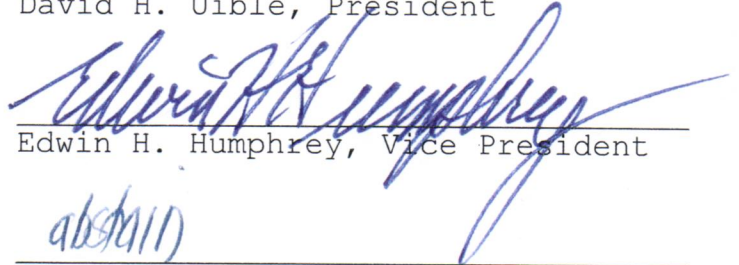 David H. Uible, President
Edwin H Humphrey
Edwin H. Humphrey, Vice President
abstain